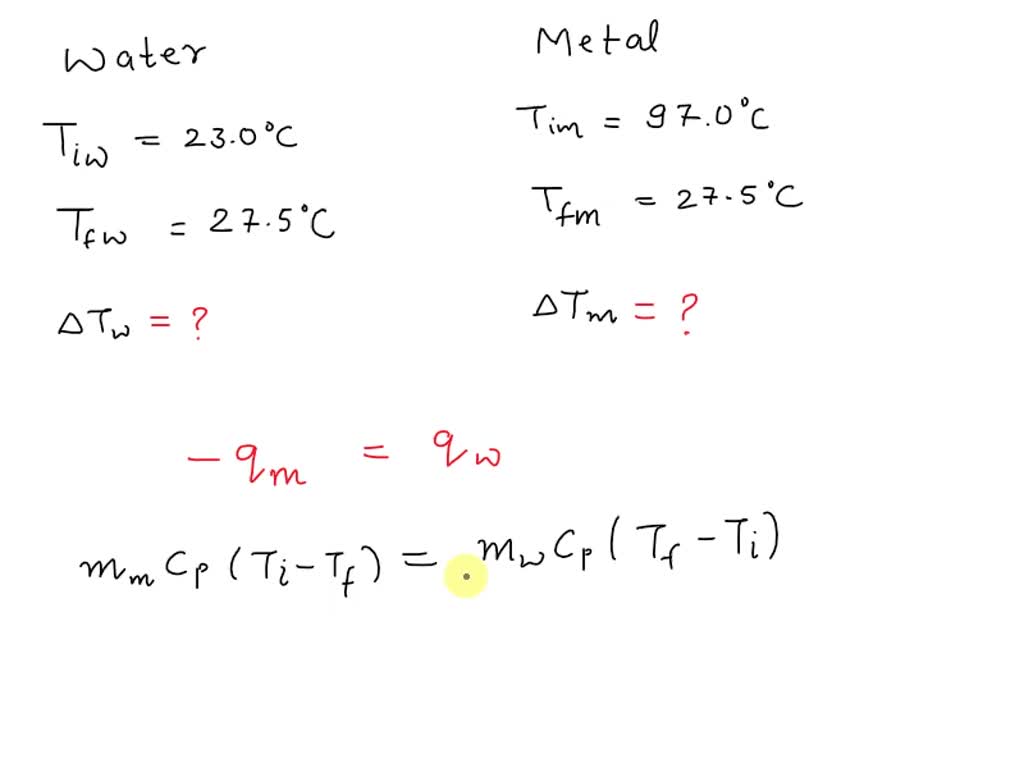 Water
T_iw = 23.0°C
T_fw = 27.5°C
ΔT_w = ?
Metal
T_im = 97.0°C
T_fm = 27.5°C
ΔT_m = ?
- q_m = q_w
m_m C_p (T_i - T_f) = m_w C_p (T_f - T_i)